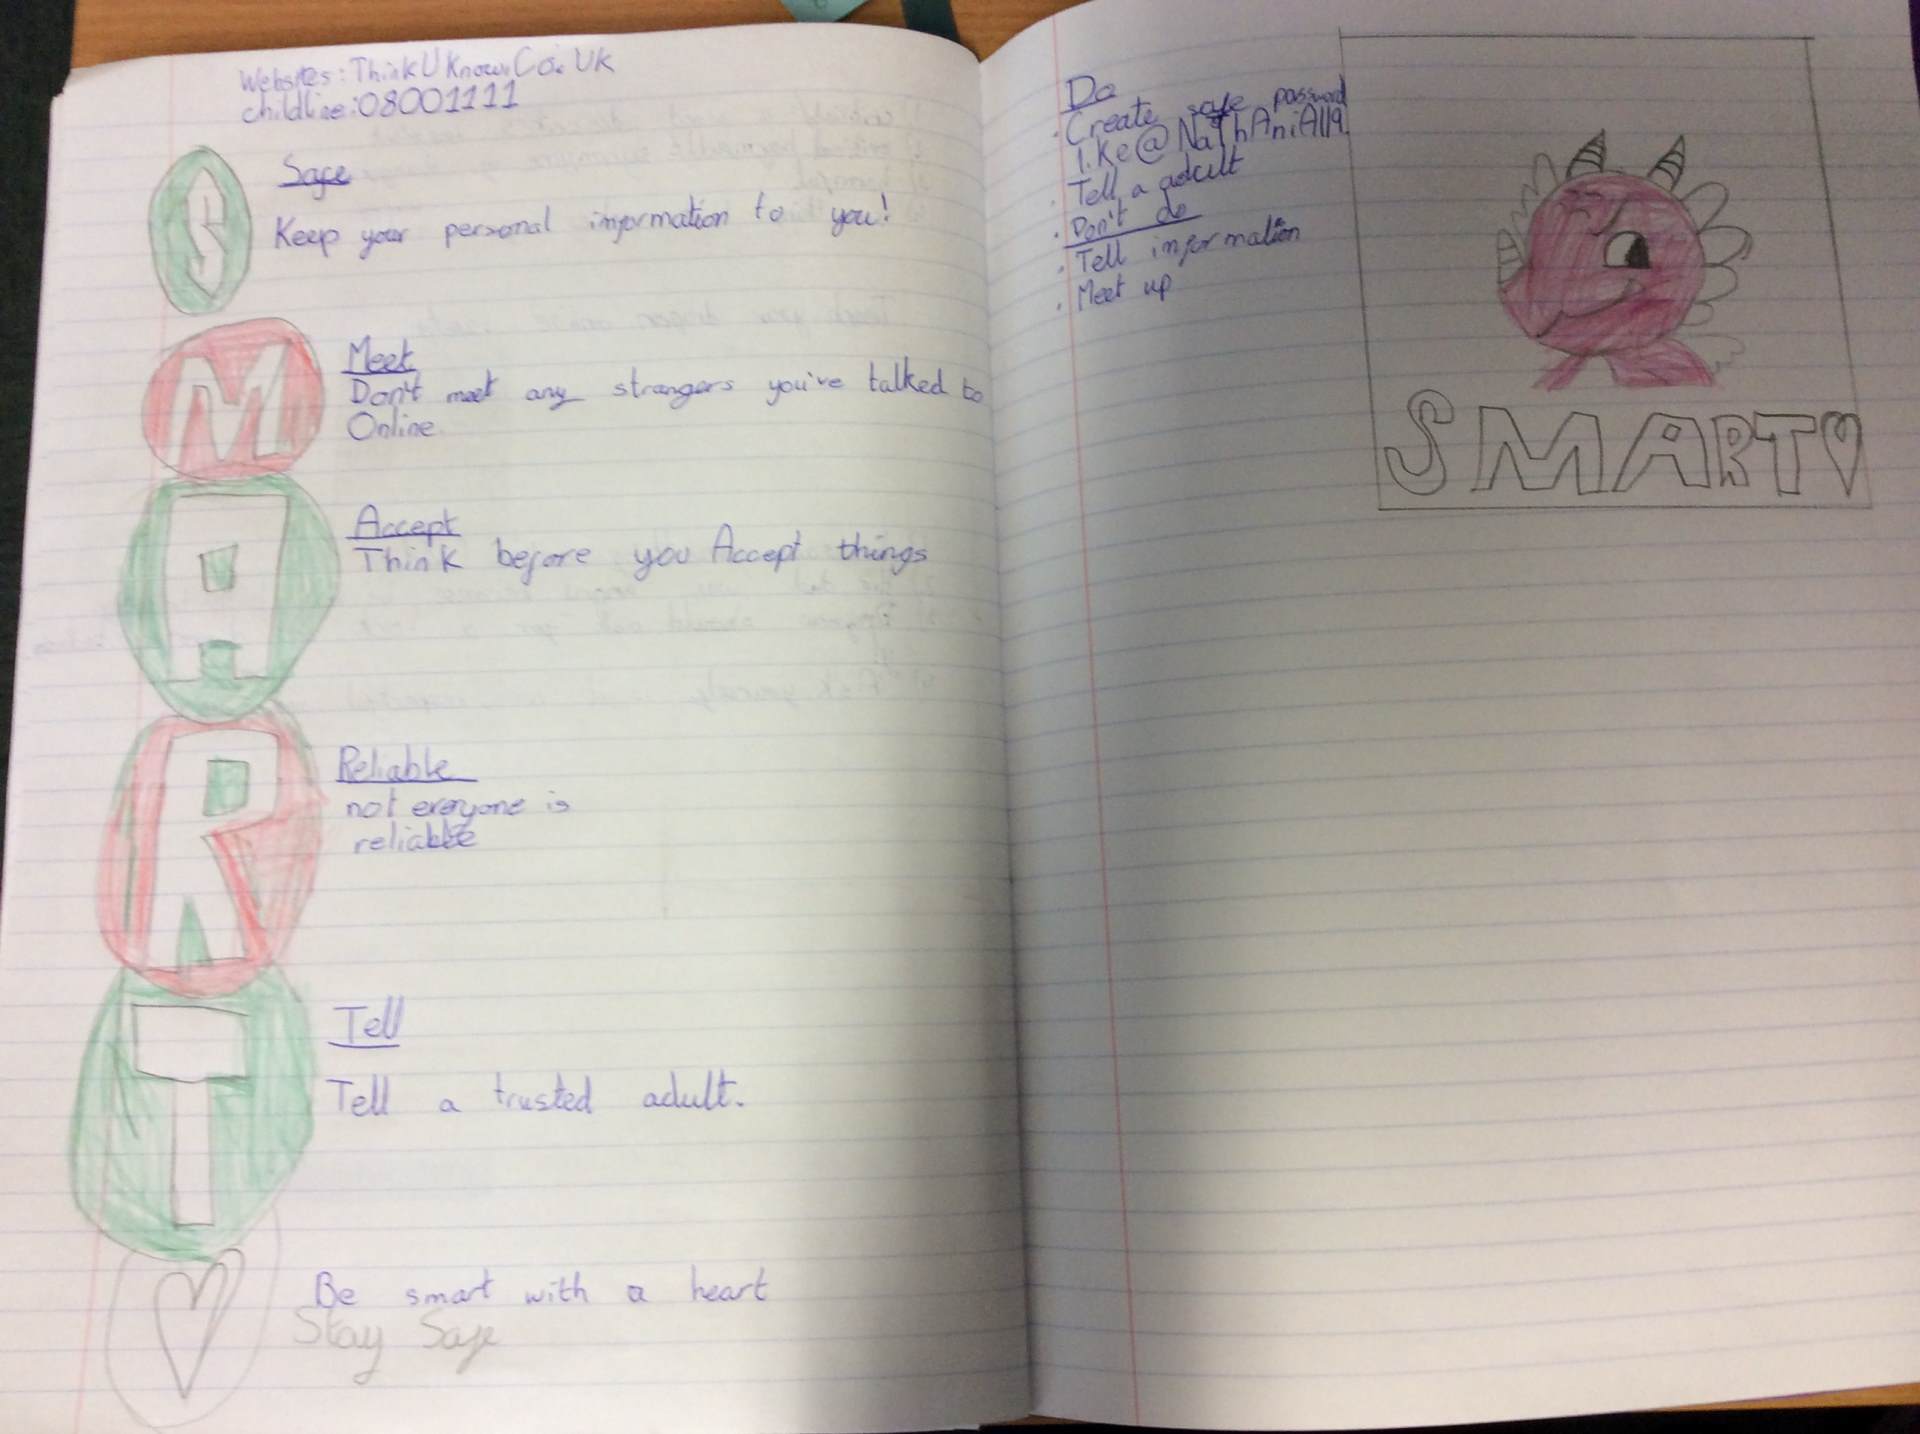 Websites: ThinkUKnow.Co.Uk
childline:08001111
S
Safe
Keep your personal information to you!
M
Meet
Don't meet any strangers you've talked to
Online
A
Accept
Think before you Accept things
R
Reliable
not everyone is
reliable
T
Tell
Tell a trusted adult.
Be smart with a heart
Stay Safe
Do
· Create safe password
like @NaThAniA119
· Tell a adult
· Don't do
· Tell information
· Meet up
SMART